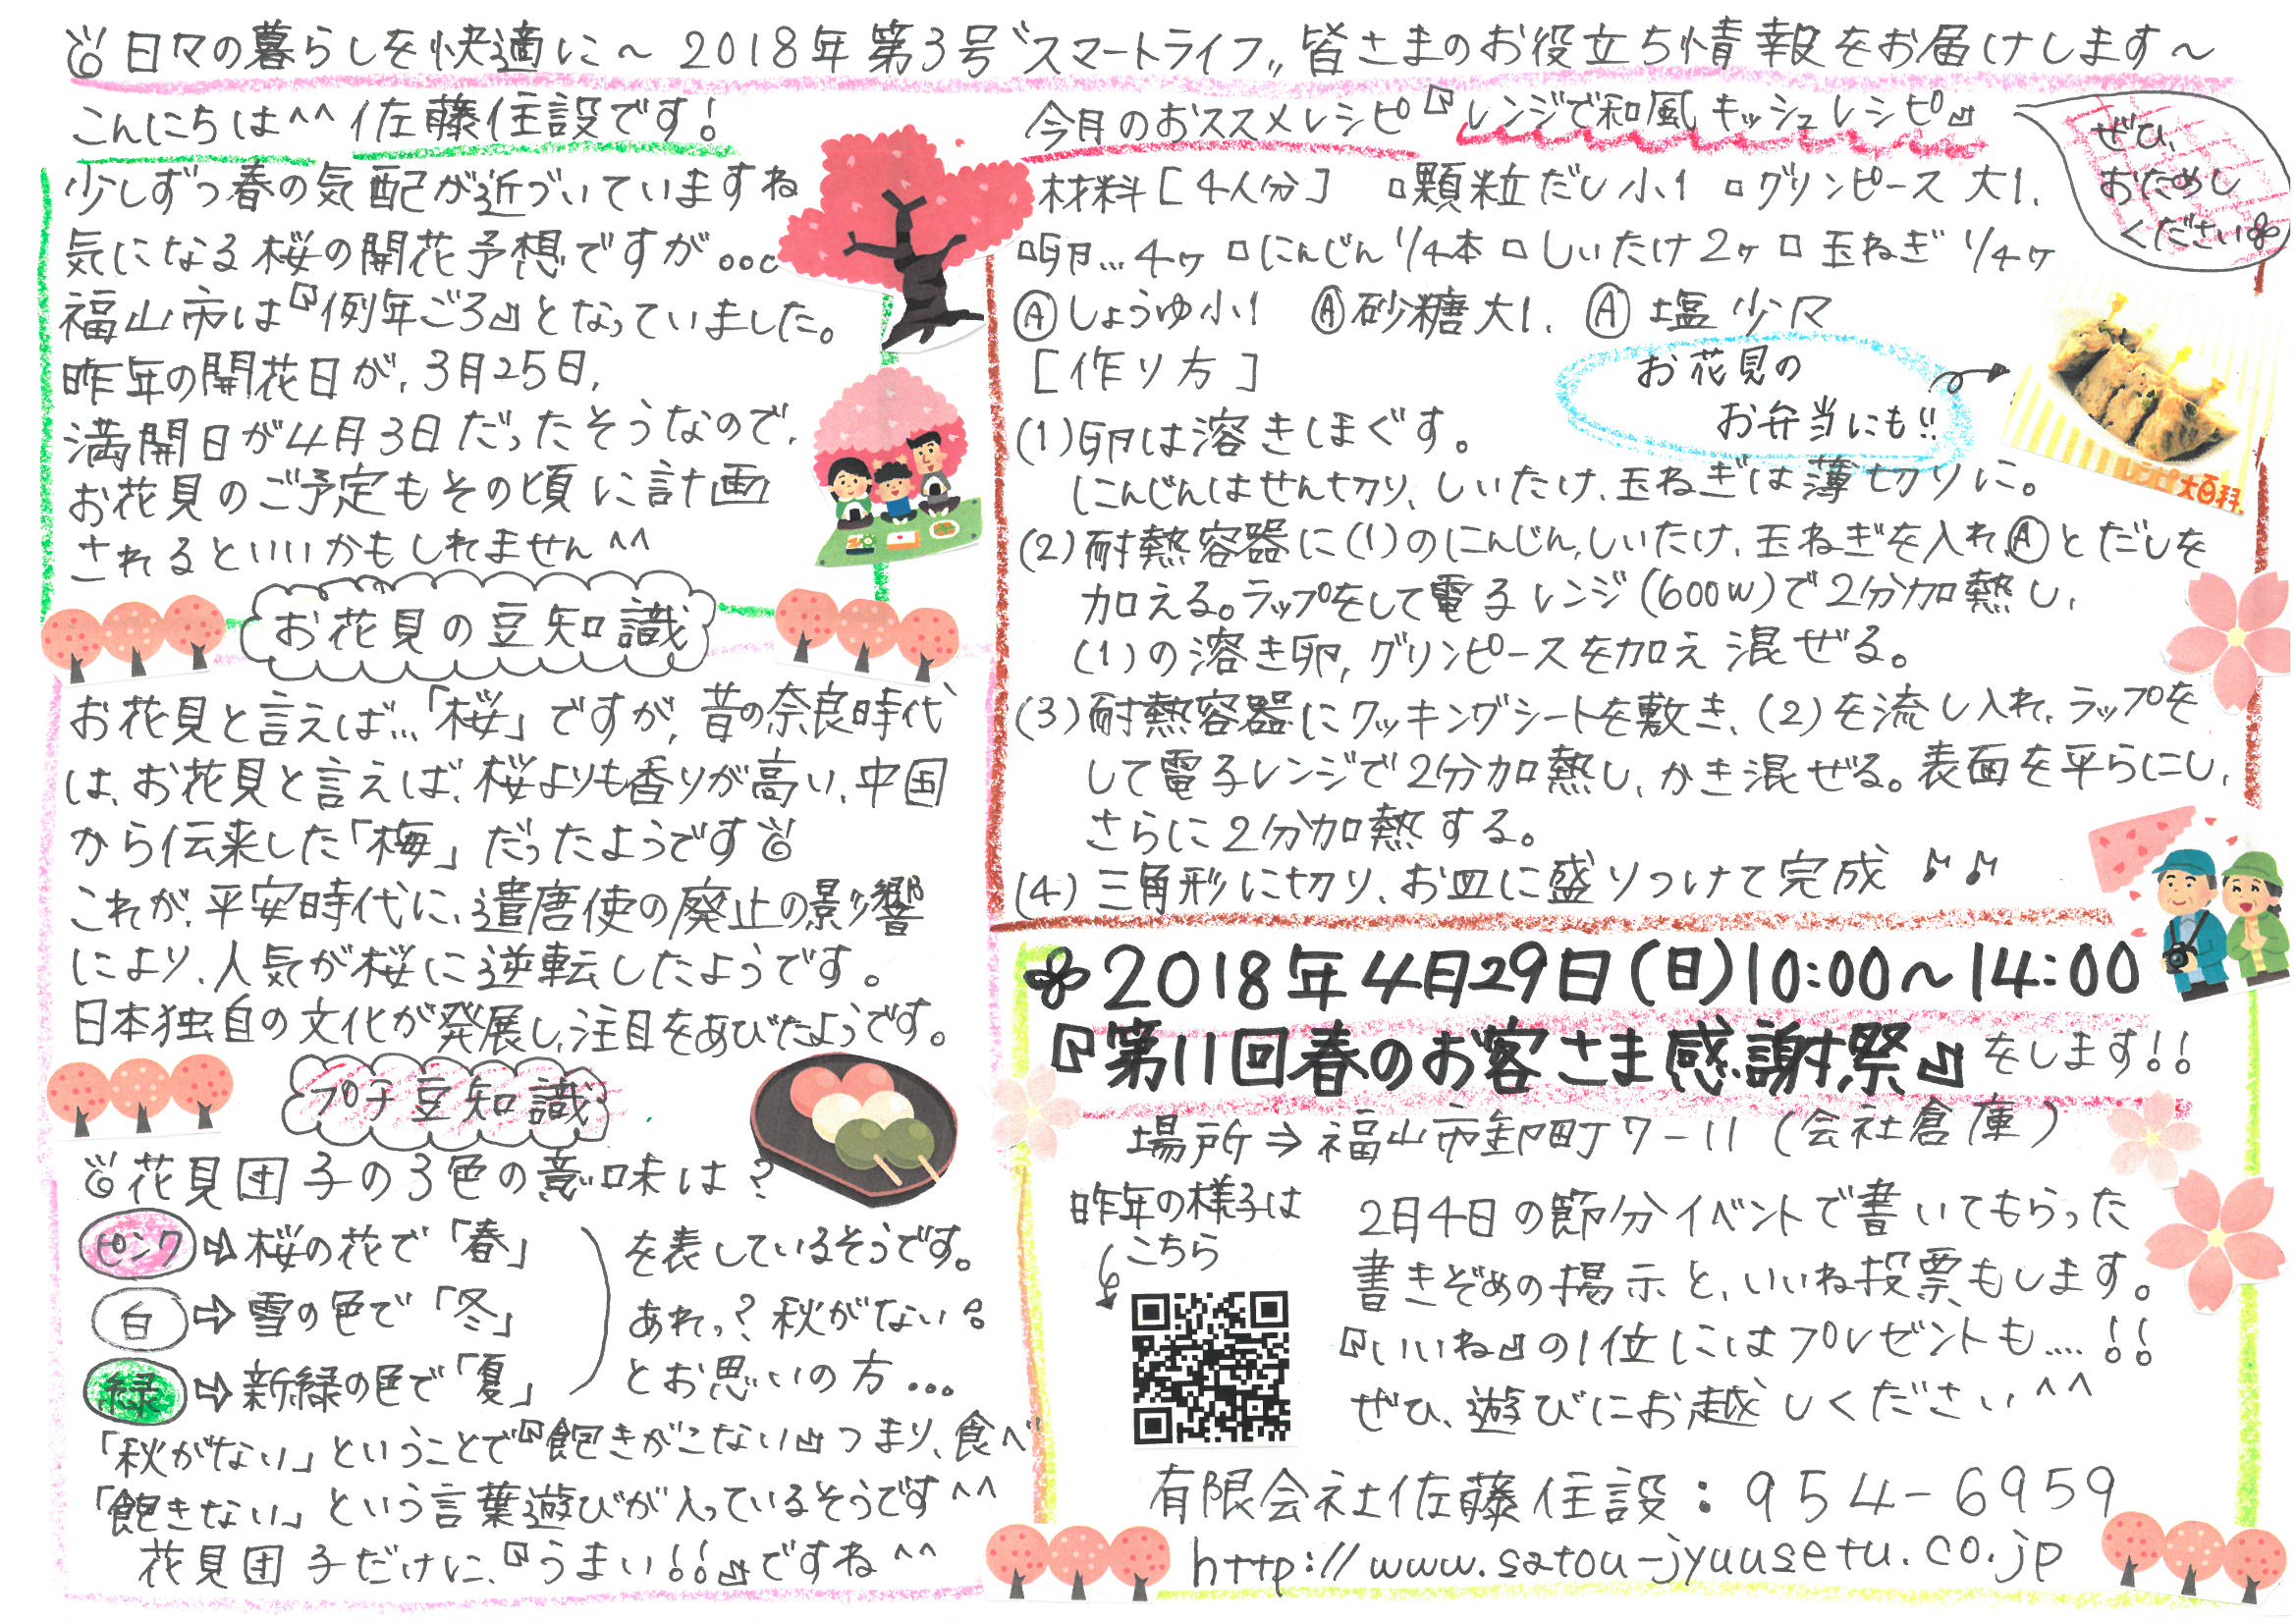 日々の暮らしを快適に～2018年第3号〝スマートライフ〟皆さまのお役立ち情報をお届けします～
こんにちは^^佐藤住設です！
少しずつ春の気配が近づいていますね
気になる桜の開花予想ですが…。
福山市は『例年ごろ』となっていました。
昨年の開花日が、3月25日、
満開日が4月3日だったそうなので、
お花見のご予定もその頃に計画
されるといいかもしれません^^
お花見の豆知識
お花見と言えば…「桜」ですが、昔の奈良時代
は、お花見と言えば、桜よりも香りが高い、中国
から伝来した「梅」だったようです
これが、平安時代に、遣唐使の廃止の影響
により、人気が桜に逆転したようです。
日本独自の文化が発展し、注目をあびたようです。
プチ豆知識
花見団子の3色の意味は？
ピンク⇨桜の花で「春」
白⇨雪の色で「冬」
緑⇨新緑の色で「夏」
を表しているそうです。
あれっ？秋がない？
とお思いの方…
「秋がない」ということで『飽きがこない』つまり、食べ
「飽きない」という言葉遊びが入っているそうです^^
花見団子だけに、『うまい！！』ですね^^
今月のおススメレシピ『レンジで和風キッシュレシピ』
ぜひ、
おためし
ください
材料［4人分］ □顆粒だし小1 □グリンピース 大1.
□卵…4ヶ □にんじん1/4本 □しいたけ2ヶ □玉ねぎ 1/4ヶ
Ⓐしょうゆ小1 Ⓐ砂糖大1. Ⓐ塩少々
［作り方］
お花見の
お弁当にも!!
レシピ大百科
(1)卵は溶きほぐす。
にんじんはせん切り、しいたけ、玉ねぎは薄切りに。
(2)耐熱容器に(1)のにんじん、しいたけ、玉ねぎを入れⒶとだしを
加える。ラップをして電子レンジ(600W)で2分加熱し、
(1)の溶き卵、グリンピースを加え混ぜる。
(3)耐熱容器にクッキングシートを敷き、(2)を流し入れ、ラップを
して電子レンジで2分加熱し、かき混ぜる。表面を平らにし、
さらに2分加熱する。
(4)三角形に切り、お皿に盛りつけて完成♪♪
2018年4月29日(日)10:00～14:00
『第11回春のお客さま感謝祭』をします!!
場所⇒福山市卸町7-11(会社倉庫)
昨年の様子は
こちら
2月4日の節分イベントで書いてもらった
書きぞめの掲示と、いいね投票もします。
『いいね』の1位にはプレゼントも….!!
ぜひ、遊びにお越しください^^
有限会社佐藤住設：954-6959
http://www.satou-jyuusetu.co.jp